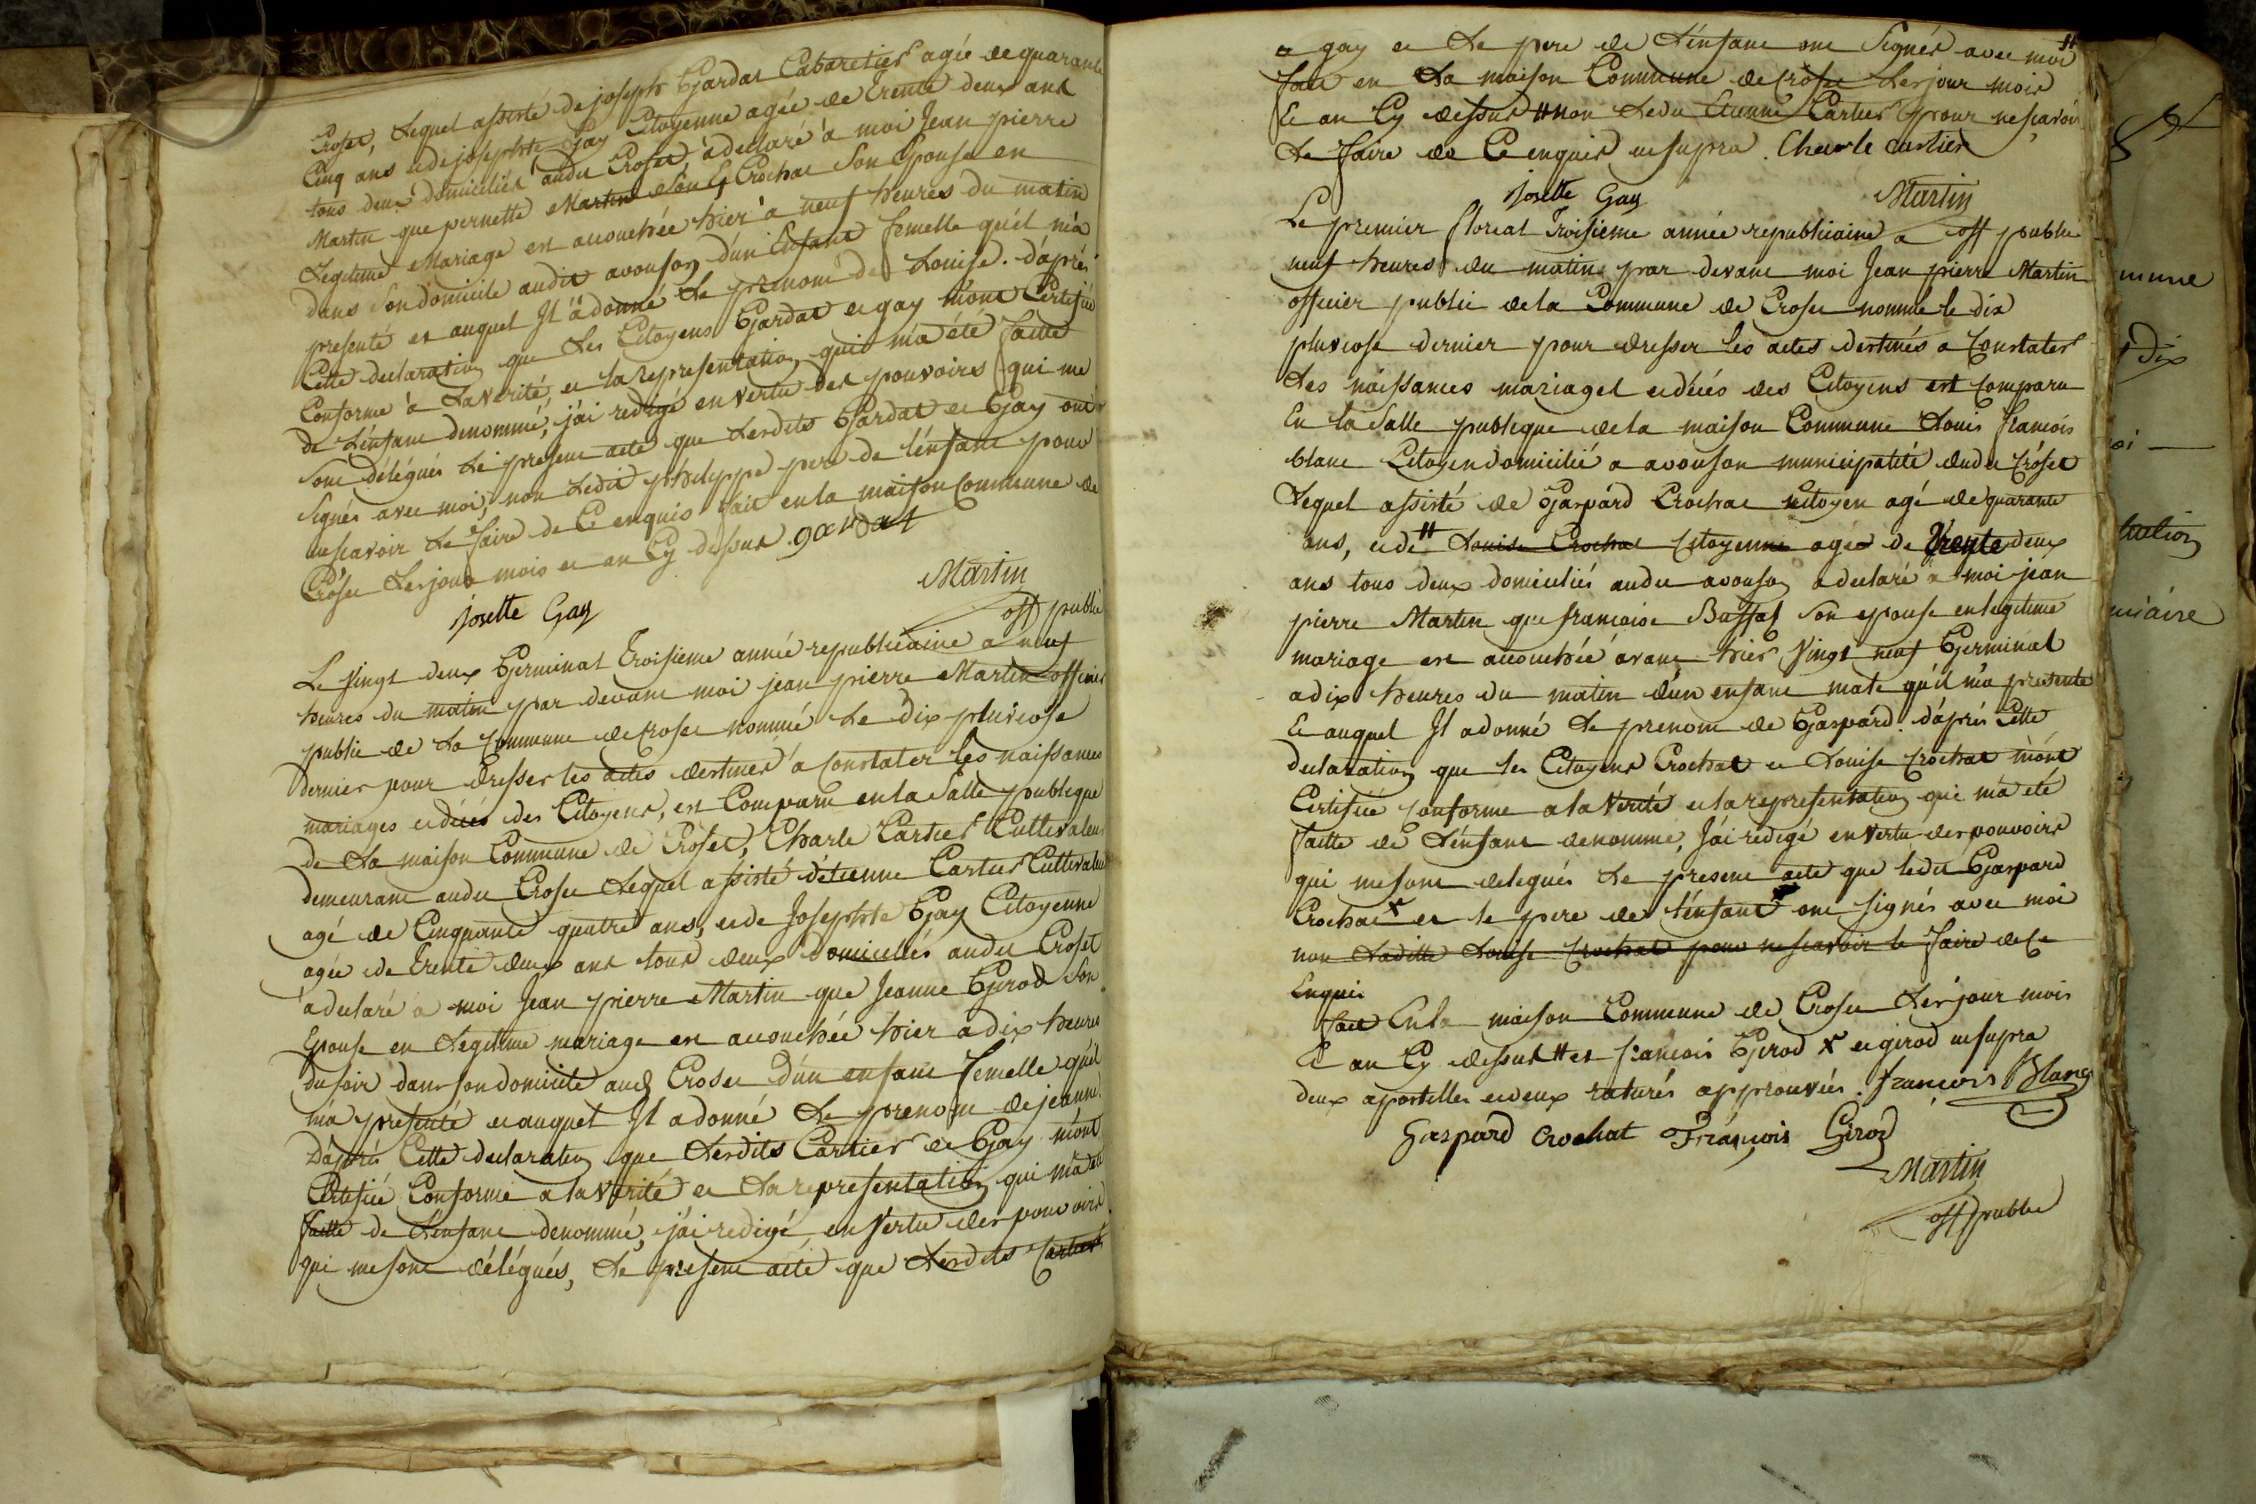 Croset, Lequel assisté de joseph Gardat Cabaretier agée de quarante
Cinq ans et de josephte Gay Citoyenne agée de Trente deux ans
tous deux domiciliés audit Croset, a declaré à moi Jean pierre
Martin que pernette Crochat Son Epouse en
Legitime Mariage est accouchée hier à neuf heures du matin
dans Son domicile audit avouson d'un Enfant femelle qu'il m'a
presenté et auquel Il a donné Le prenom de Louise. d'après
Cette declaration que Les Citoyens Gardat et gay m'ont Certifiée
Conforme à La Verité, et la representation qui m'a été faitte
de L'enfant denommé, j'ai redigé en vertu des pouvoirs qui me
Sont délégués Le present acte que Lesdits Gardat et Gay ont
Signés avec moi, non Ledit philyppe pere de l'enfant pour
nescavoir Le faire de Ce enquis fait en la maison Commune de
Croset Les jour mois et an Cy dessus gardat
Martin
josette Gay
off public
Le Vingt deux Germinal Troisieme année republicaine a neuf
heures du matin par devant moi jean pierre Martin officier
public de La Commune de Croset nommé Le dix pluviose
dernier pour dresser les actes destinés a Constater les naissances
mariages et décés des Citoyens, est Comparu en la Salle publique
de La maison Commune de Croset, Charle Cartier Cultivateur
demeurant audit Croset Lequel assisté d'etienne Cartier Cultivateur
agé de Cinquante quatre ans, et de Josephte Gay Citoyenne
agée de Trente deux ans tous deux domiciliés audit Croset
a declaré à moi Jean pierre Martin que Jeanne Girod Son
Epouse en Legitime mariage est accouchée hier a dix heures
du soir dans son domicile aud Croset D'un enfant femelle qu'il
m'a presenté et auquel Il a donné Le prenom de jeanne.
D'après Cette declaration que Lesdits Cartier et Gay m'ont
Certifiée Conforme a la Verité et La representation qui m'a été
faitte de L'enfant denommé, j'ai redigé en vertu des pouvoirs
qui me sont délégués, Le present acte que Lesdits Cartier
a gay et Le pere de L'enfant ont Signés avec moi #
fait en La maison Commune de Croset Les jour mois
Et an Cy dessus # non Ledit Etienne Cartier pour nescavoir
Le faire de Ce enquis ut supra. Charle Cartier
josette Gay Martin
off public
Le premier floreal Troisieme année republicaine a
neuf heures du matin par devant moi Jean pierre Martin
officier public de la Commune de Croset nommé le dix
pluviose dernier pour dresser les actes destinés a Constater
Les naissances mariages et décés des Citoyens est Comparu
En la Salle publique de la maison Commune Louis francois
blanc Citoyen domicilié a avouson municipalité dudit Croset
Lequel assisté de Gaspard Crochat Citoyen agé de quarante
ans, et de # Louise Crochat Citoyenne agée de Trente deux
ans tous deux domiciliés audit avouson a declaré a moi jean
pierre Martin que francoise Buffat Son epouse en legitime
mariage est accouchée avant hier Vingt neuf Germinal
a dix heures du matin d'un enfant male qu'il m'a presenté
Et auquel Il a donné Le prenom de Gaspard. d'après Cette
declaration que les Citoyens Crochat et Louise Crochat m'ont
Certifiée Conforme a la Verité et la representation qui m'a été
faitte de L'enfant denommé, J'ai redigé en Vertu des pouvoirs
qui me sont delegués Le present acte que ledit Gaspard
Crochat x et le pere de l'enfant ont signés avec moi
non Laditte Louise Crochat pour nescavoir le faire de Ce
Enquis
fait En la maison Commune de Croset Les jour mois
Et an Cy dessus # et francois Girod x et girod ut supra
deux apostilles et deux raturés approuvées. françois Blanc
Gaspard Crochat François Girod
Martin
off public
mune
dix
oi
tation
iciaire